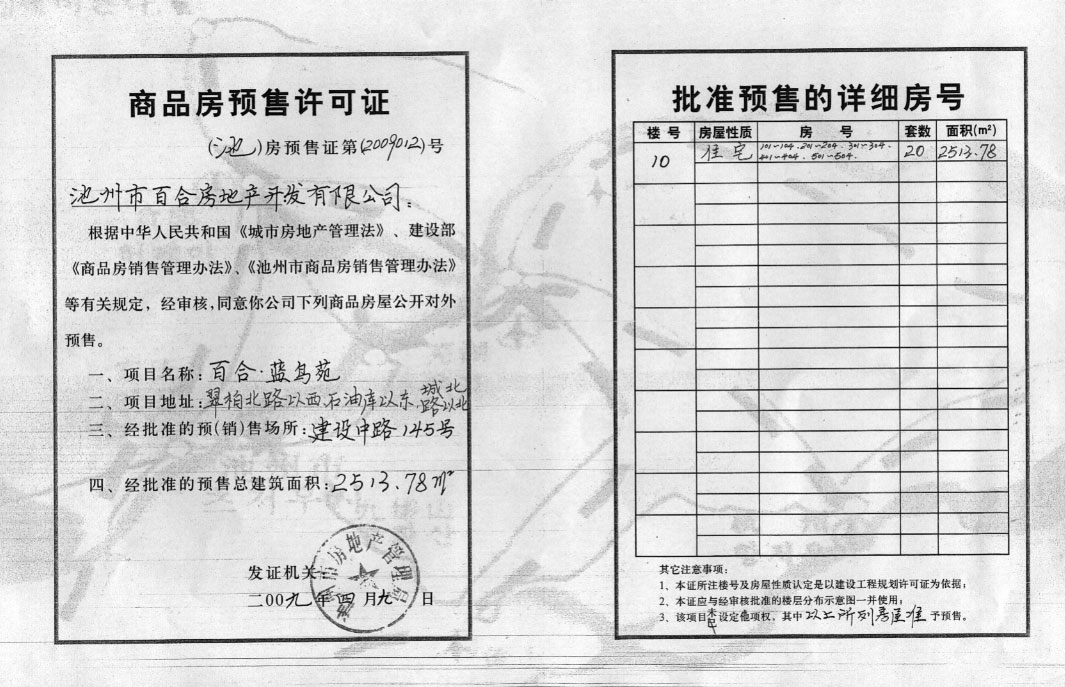 商品房预售许可证
(池)房预售证第(2009012)号
池州市百合房地产开发有限公司:
根据中华人民共和国《城市房地产管理法》、建设部
《商品房销售管理办法》、《池州市商品房销售管理办法》
等有关规定,经审核,同意你公司下列商品房屋公开对外
预售。
一、项目名称:百合·蓝鸟苑
二、项目地址:翠柏北路以西,石油库以东,城北路以北
三、经批准的预(销)售场所:建设中路145号
四、经批准的预售总建筑面积:2513.78㎡
发证机关:
二00九年四月九日
市房地产管理局
批准预售的详细房号
楼号 房屋性质 房号 套数 面积(m²)
10 住宅 101-104.201-204.301-304. 20 2513.78
401-404.501-504.
其它注意事项:
1、本证所注楼号及房屋性质认定是以建设工程规划许可证为依据;
2、本证应与经审核批准的楼层分布示意图一并使用;
3、该项目未已设定他项权,其中以上所列房屋准予预售。